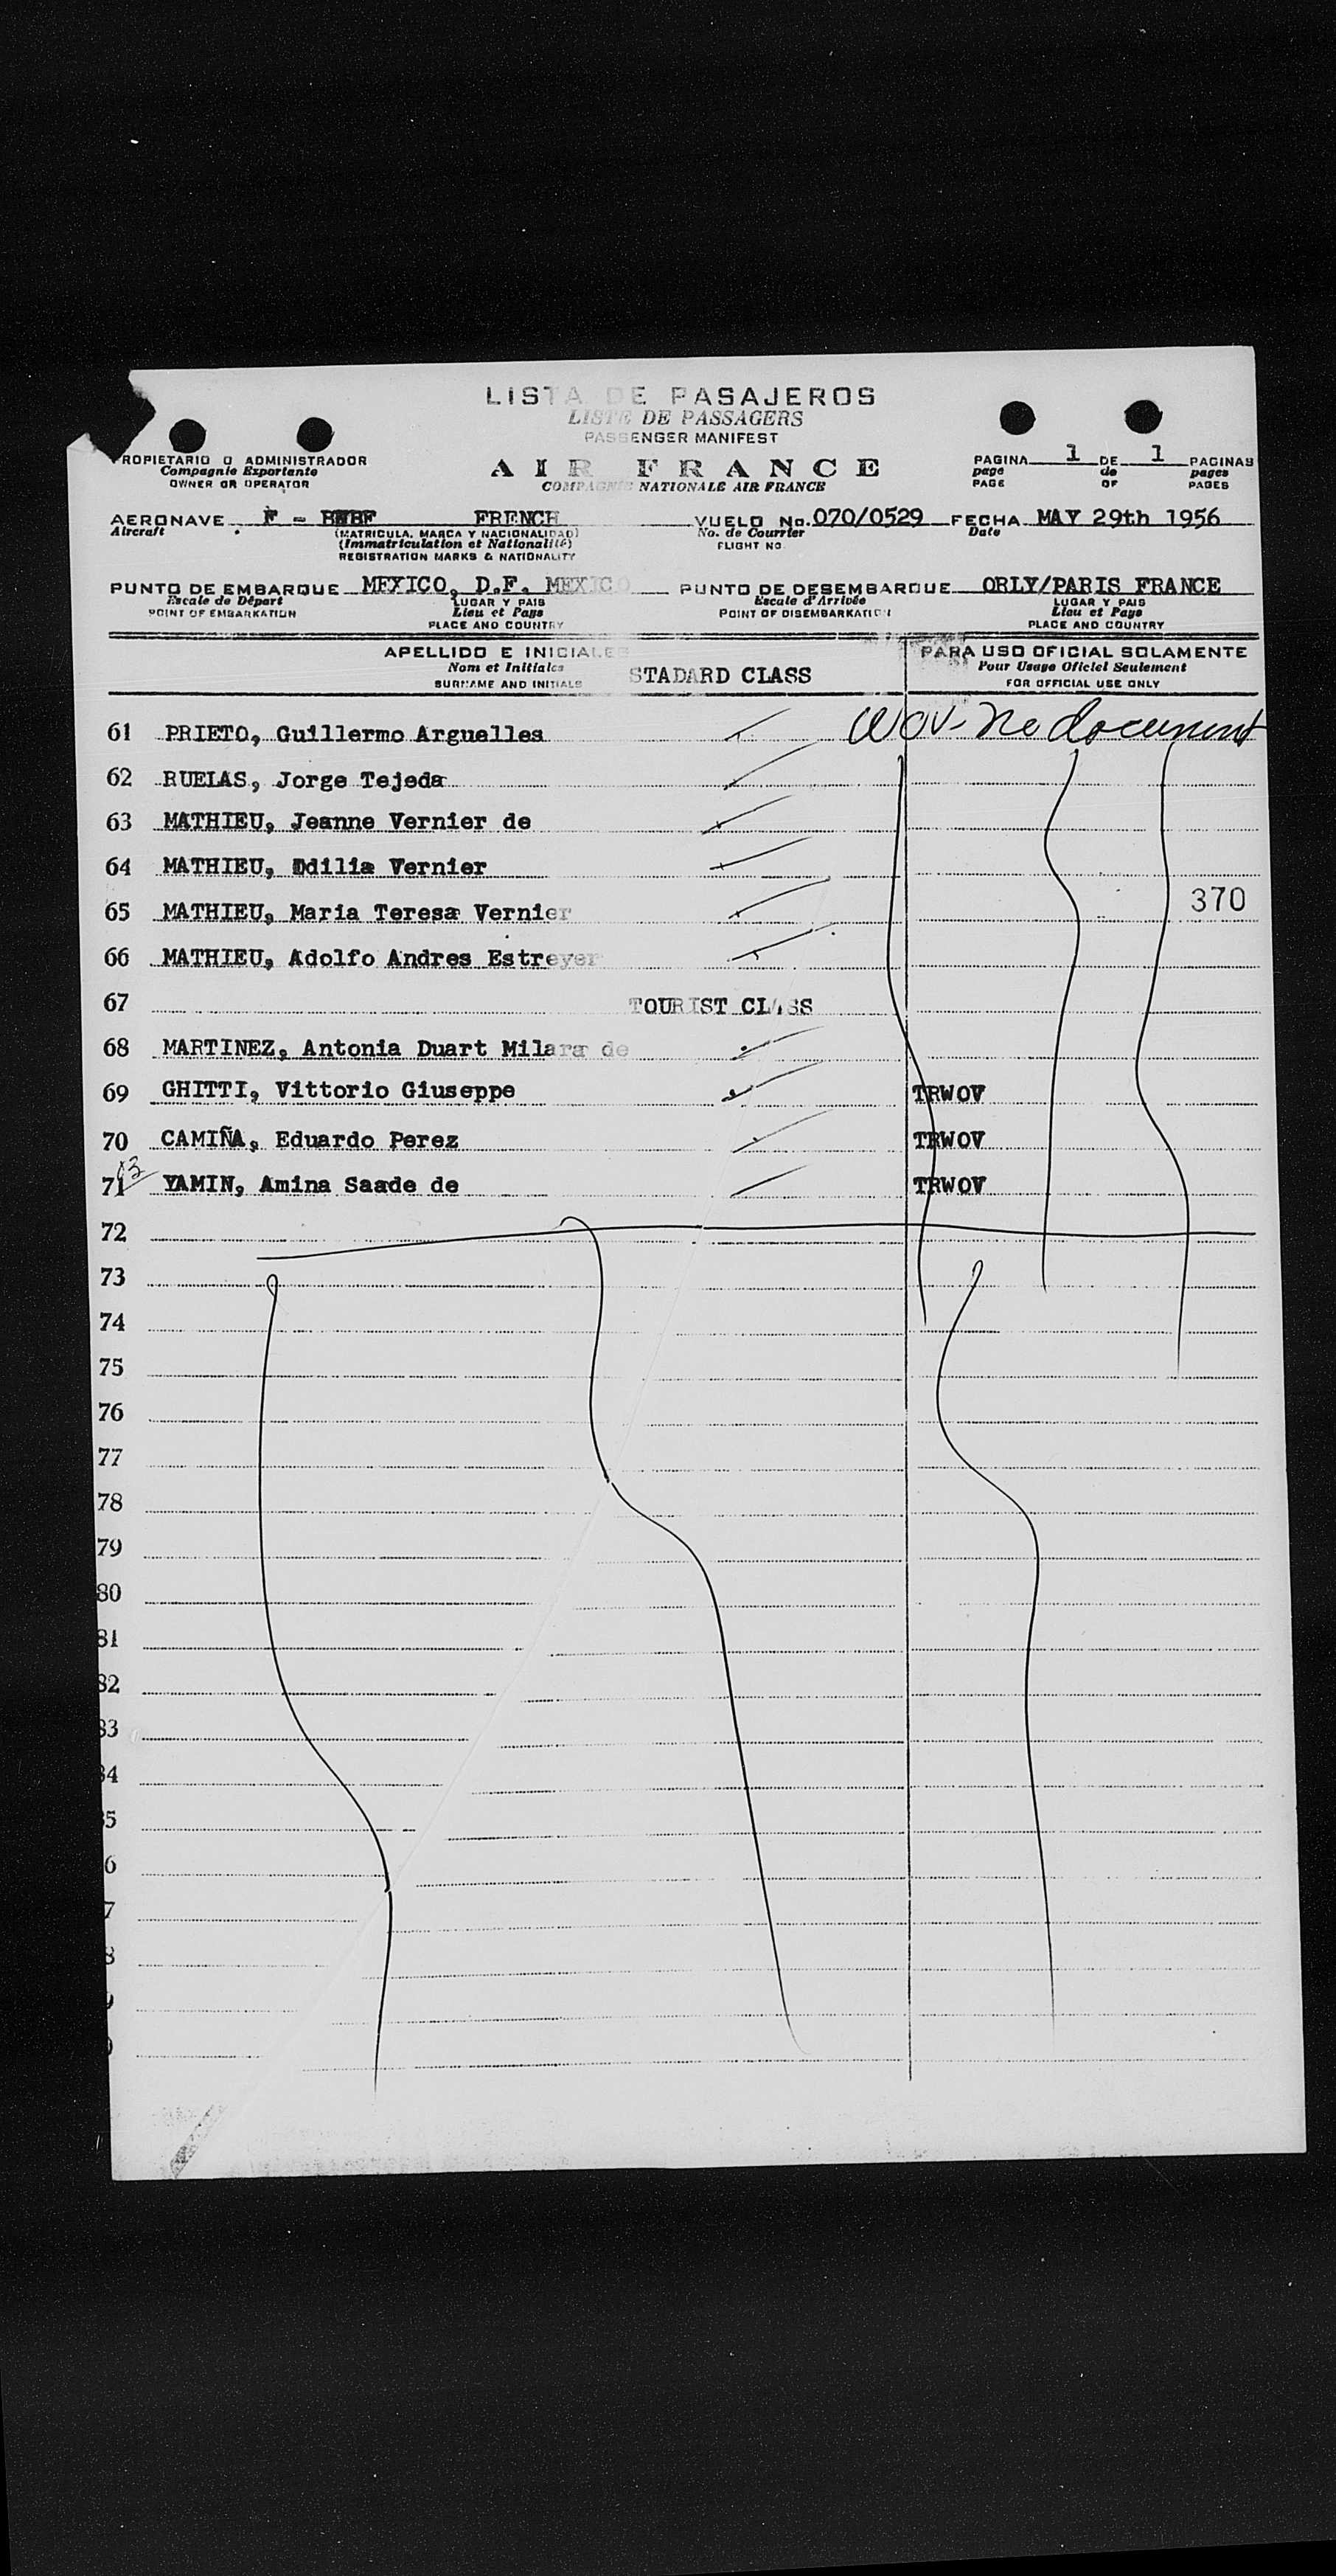 LISTA DE PASAJEROS
LISTE DE PASSAGERS
PASSENGER MANIFEST
AIR FRANCE
COMPAGNIE NATIONALE AIR FRANCE
ROPIETARIO O ADMINISTRADOR
Compagnie Exportante
OWNER OR OPERATOR
PAGINA 1 DE 1 PAGINAS
page de pages
PAGE OF PAGES
AERONAVE F - FRENCH VUELO No. 070/0529 FECHA MAY 29th 1956
Aircraft (MATRICULA, MARCA Y NACIONALIDAD) No. de Courrier Date
(Immatriculation et Nationalité) FLIGHT NO.
REGISTRATION MARKS & NATIONALITY
PUNTO DE EMBARQUE MEXICO, D.F. MEXICO PUNTO DE DESEMBARQUE ORLY/PARIS FRANCE
Escale de Départ LUGAR Y PAIS Escale d'Arrivée LUGAR Y PAIS
POINT OF EMBARKATION Lieu et Pays POINT OF DISEMBARKATION Lieu et Pays
PLACE AND COUNTRY PLACE AND COUNTRY
APELLIDO E INICIALES PARA USO OFICIAL SOLAMENTE
Nom et Initiales STADARD CLASS Pour Usage Oficiel Seulement
SURNAME AND INITIALS FOR OFFICIAL USE ONLY
61 PRIETO, Guillermo Arguelles WOV- No document
62 RUELAS, Jorge Tejeda
63 MATHIEU, Jeanne Vernier de
64 MATHIEU, Odilia Vernier
65 MATHIEU, Maria Teresa Vernier 370
66 MATHIEU, Adolfo Andres Estreyer
67 TOURIST CLASS
68 MARTINEZ, Antonia Duart Milara de
69 GHITTI, Vittorio Giuseppe TRWOV
70 CAMIÑA, Eduardo Perez TRWOV
13
71 YAMIN, Amina Saade de TRWOV
72
73
74
75
76
77
78
79
80
81
82
83
84
5
6
7
8